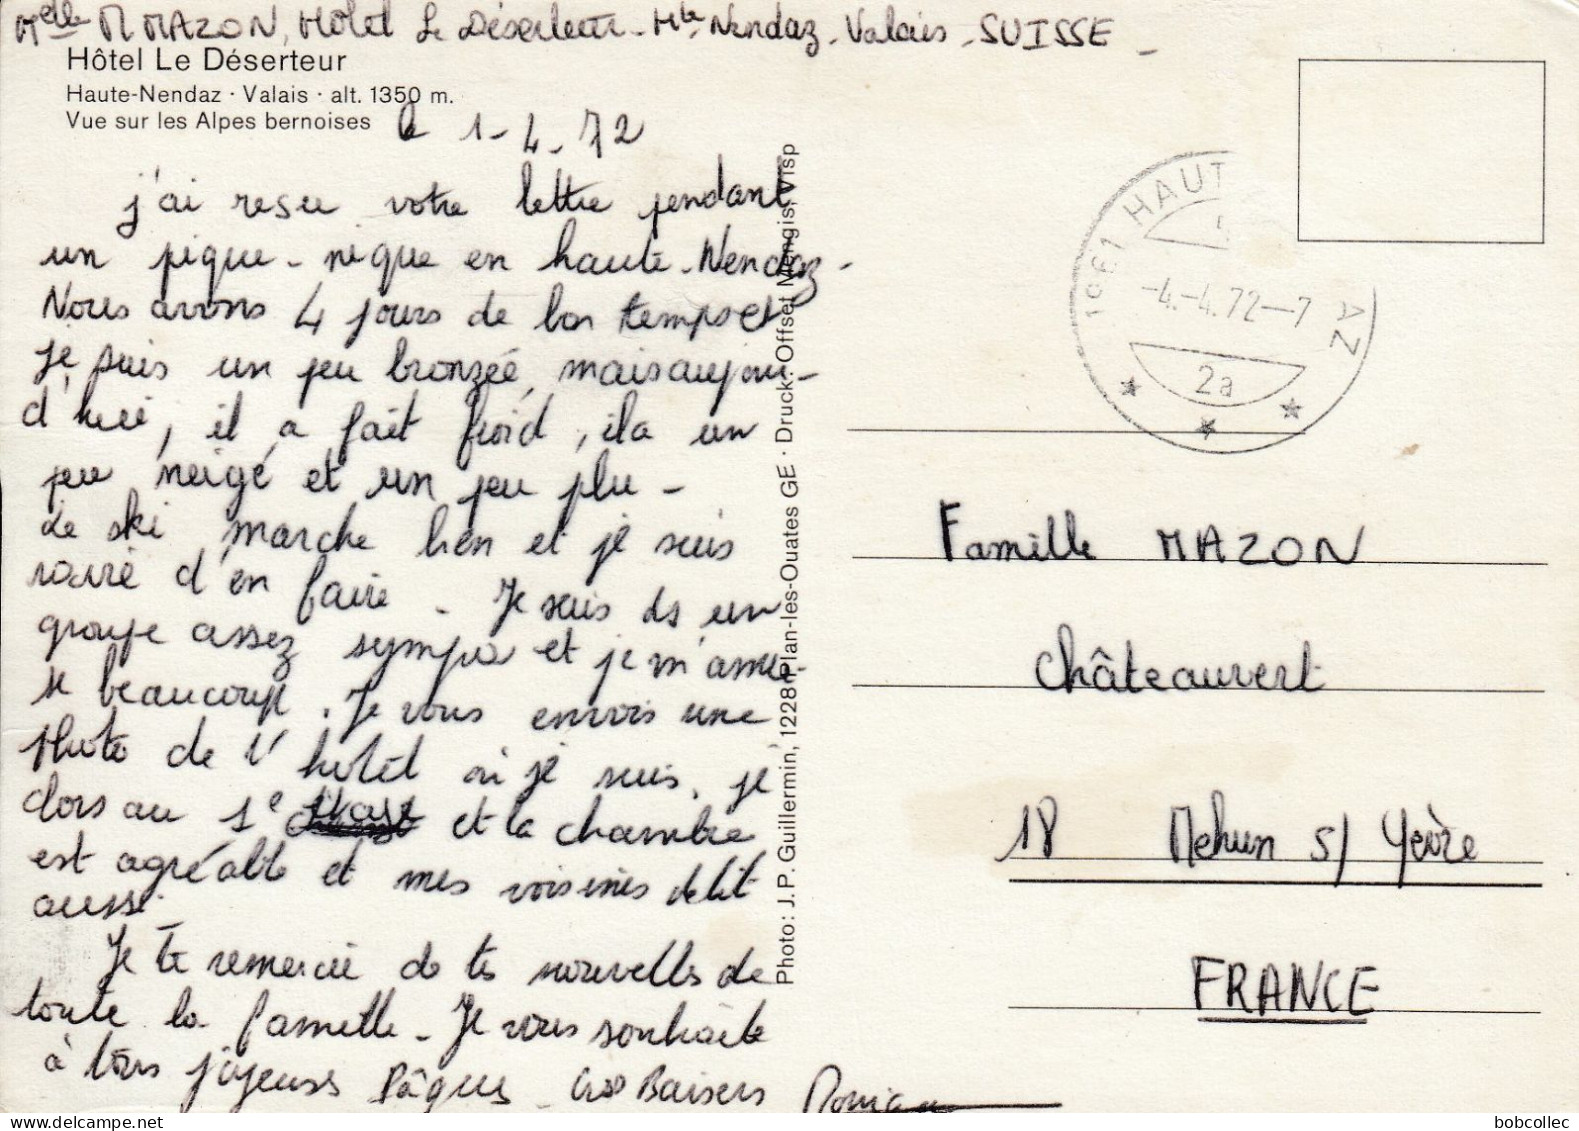 Melle M MAZON, Hôtel Le Déserteur - Hte Nendaz - Valais - SUISSE -
Hôtel Le Déserteur
Haute-Nendaz · Valais · alt. 1350 m.
Vue sur les Alpes bernoises
le 1-4-72
j'ai reçu votre lettre pendant
un pique-nique en haute-Nendaz -
Nous avons 4 jours de bon temps et
je suis un peu bronzée, mais aujour-
d'hui, il a fait froid, il a un
peu neigé et un peu plu -
Le ski marche bien et je suis
ravie d'en faire - Je suis ds un
groupe assez sympa et je m'amu-
se beaucoup. Je vous envois une
photo de l'hotel où je suis, je
dors au 1e et la chambre
est agréable et mes voisines de lit
aussi.
Je te remercie de tes nouvelles de
toute la famille - Je vous souhaite
à tous joyeuses Pâques - Gros Baisers
Photo: J. P. Guillermin, 1228 Plan-les-Ouates GE · Druck: Offset Mengis, Visp
1961 HAUT AZ
-4.-4.72-7
2a
Famille MAZON
Châteauvert
18 Mehun s/ Yèvre
FRANCE
bobcollec